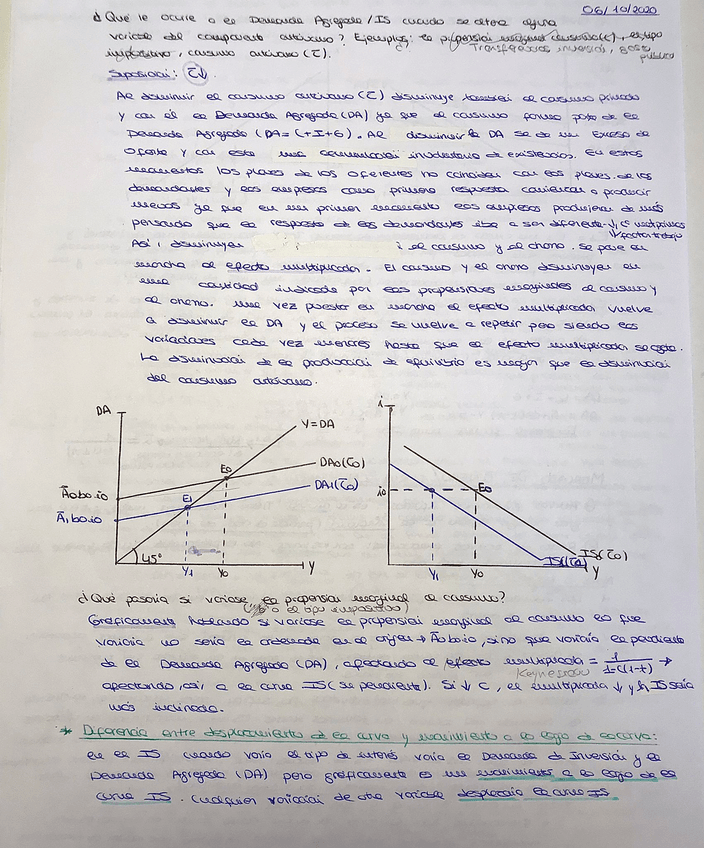 06/10/2020
¿Qué le ocurre a la Demanda Agregada/IS cuando se altera alguna
variable del componente autónomo? Ejemplos: la propensión marginal consumo(c), el tipo
impositivo, consumo autónomo (C̄). Transferencias, inversión, gasto público
Suposición: C̄↓
Al disminuir el consumo autónomo (C̄) disminuye también el consumo privado
y con él la Demanda Agregada (DA) ya que el consumo forma parte de la
Demanda Agregada (DA=C+I+G). Al disminuir la DA se da un exceso de
oferta y con este una acumulación involuntaria de existencias. En estos
momentos los planes de los oferentes no coinciden con los planes de los
demandantes y las empresas como primera respuesta comienzan a producir
menos ya que en un primer momento las empresas produjeron de más
pensando que la respuesta de los demandantes iba a ser diferente
↓ factor trabajo
Así, disminuyen el consumo y el ahorro. Se pone en
marcha el efecto multiplicador. El consumo y el ahorro disminuyen en
una cantidad indicada por las propensiones marginales al consumo y
al ahorro. Una vez puesto en marcha el efecto multiplicador vuelve
a disminuir la DA y el proceso se vuelve a repetir pero siendo las
variaciones cada vez menores hasta que el efecto multiplicador se agota.
La disminución de la producción de equilibrio es mayor que la disminución
del consumo autónomo.
DA
Y=DA
DA0(C̄0)
DA1(C̄0)
E0
E1
Ā0 b0 i0
Ā1 b0 i0
45°
Y1 Y0 Y
i
i0
E0
IS(C̄0)
IS(C̄0)
Y1 Y0 Y
¿Qué pasaría si variase la propensión marginal al consumo?
(y/o el tipo impositivo)
Gráficamente hablando si variase la propensión marginal al consumo lo que
variaría no sería la ordenada en el origen → Ā0 b0 i0, sino que variaría la pendiente
de la Demanda Agregada (DA), afectando al efecto multiplicador = 1/1-c(1-t) →
Keynesiano
afectando, así, a la curva IS (su pendiente). Si ↓ c, el multiplicador ↓ y la IS sería
más inclinada.
* Diferencia entre desplazamiento de la curva y movimiento a lo largo de la curva:
en la IS cuando varía el tipo de interés varía la Demanda de Inversión y la
Demanda Agregada (DA) pero gráficamente es un movimiento a lo largo de la
curva IS. Cualquier variación de otra variable desplazaría la curva IS.